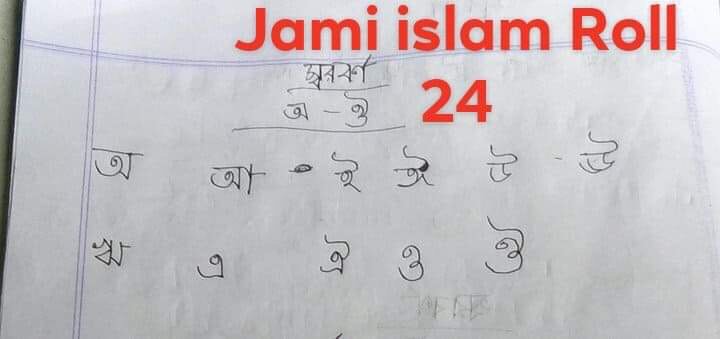 Jami islam Roll
24
স্বরবর্ণ
অ - ঔ
অ আ ই ঈ উ ঊ
ঋ এ ঐ ও ঔ